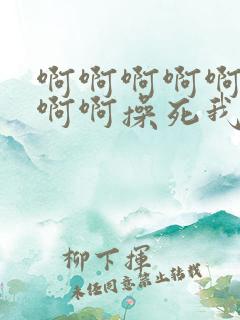 啊啊啊啊啊
啊啊操死我
柳下挥
未经同意禁止转载